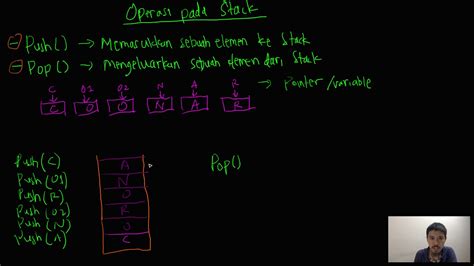 Operasi pada Stack
- Push() → Memasukkan sebuah elemen ke Stack
- Pop() → Mengeluarkan sebuah elemen dari Stack
C O2 O1 N A R
C O O N A R → Pointer/variable
Push(C) A Pop()
Push(O1) N
Push(R) O
Push(O2) R
Push(N) O
Push(A) C